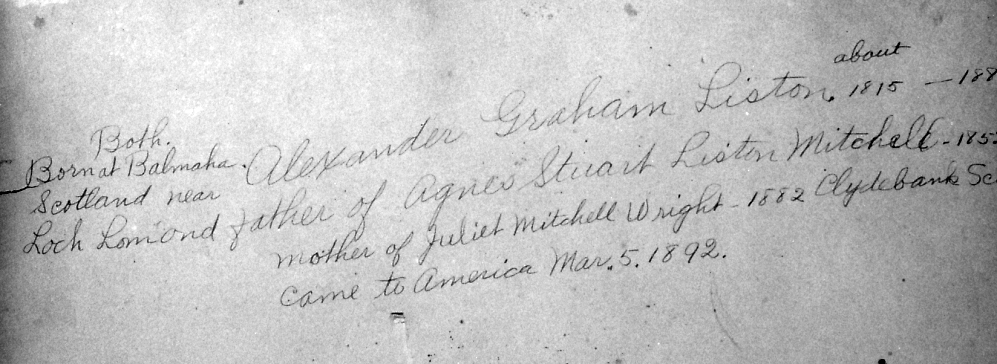 about
Alexander Graham Liston. 1815 — 188
Both.
Born at Balmaha.
Scotland near
Loch Lomond
father of Agnes Stuart Liston Mitchell - 185
mother of Juliet Mitchell Wright - 1882 Clydebank Sc
came to America Mar. 5. 1892.